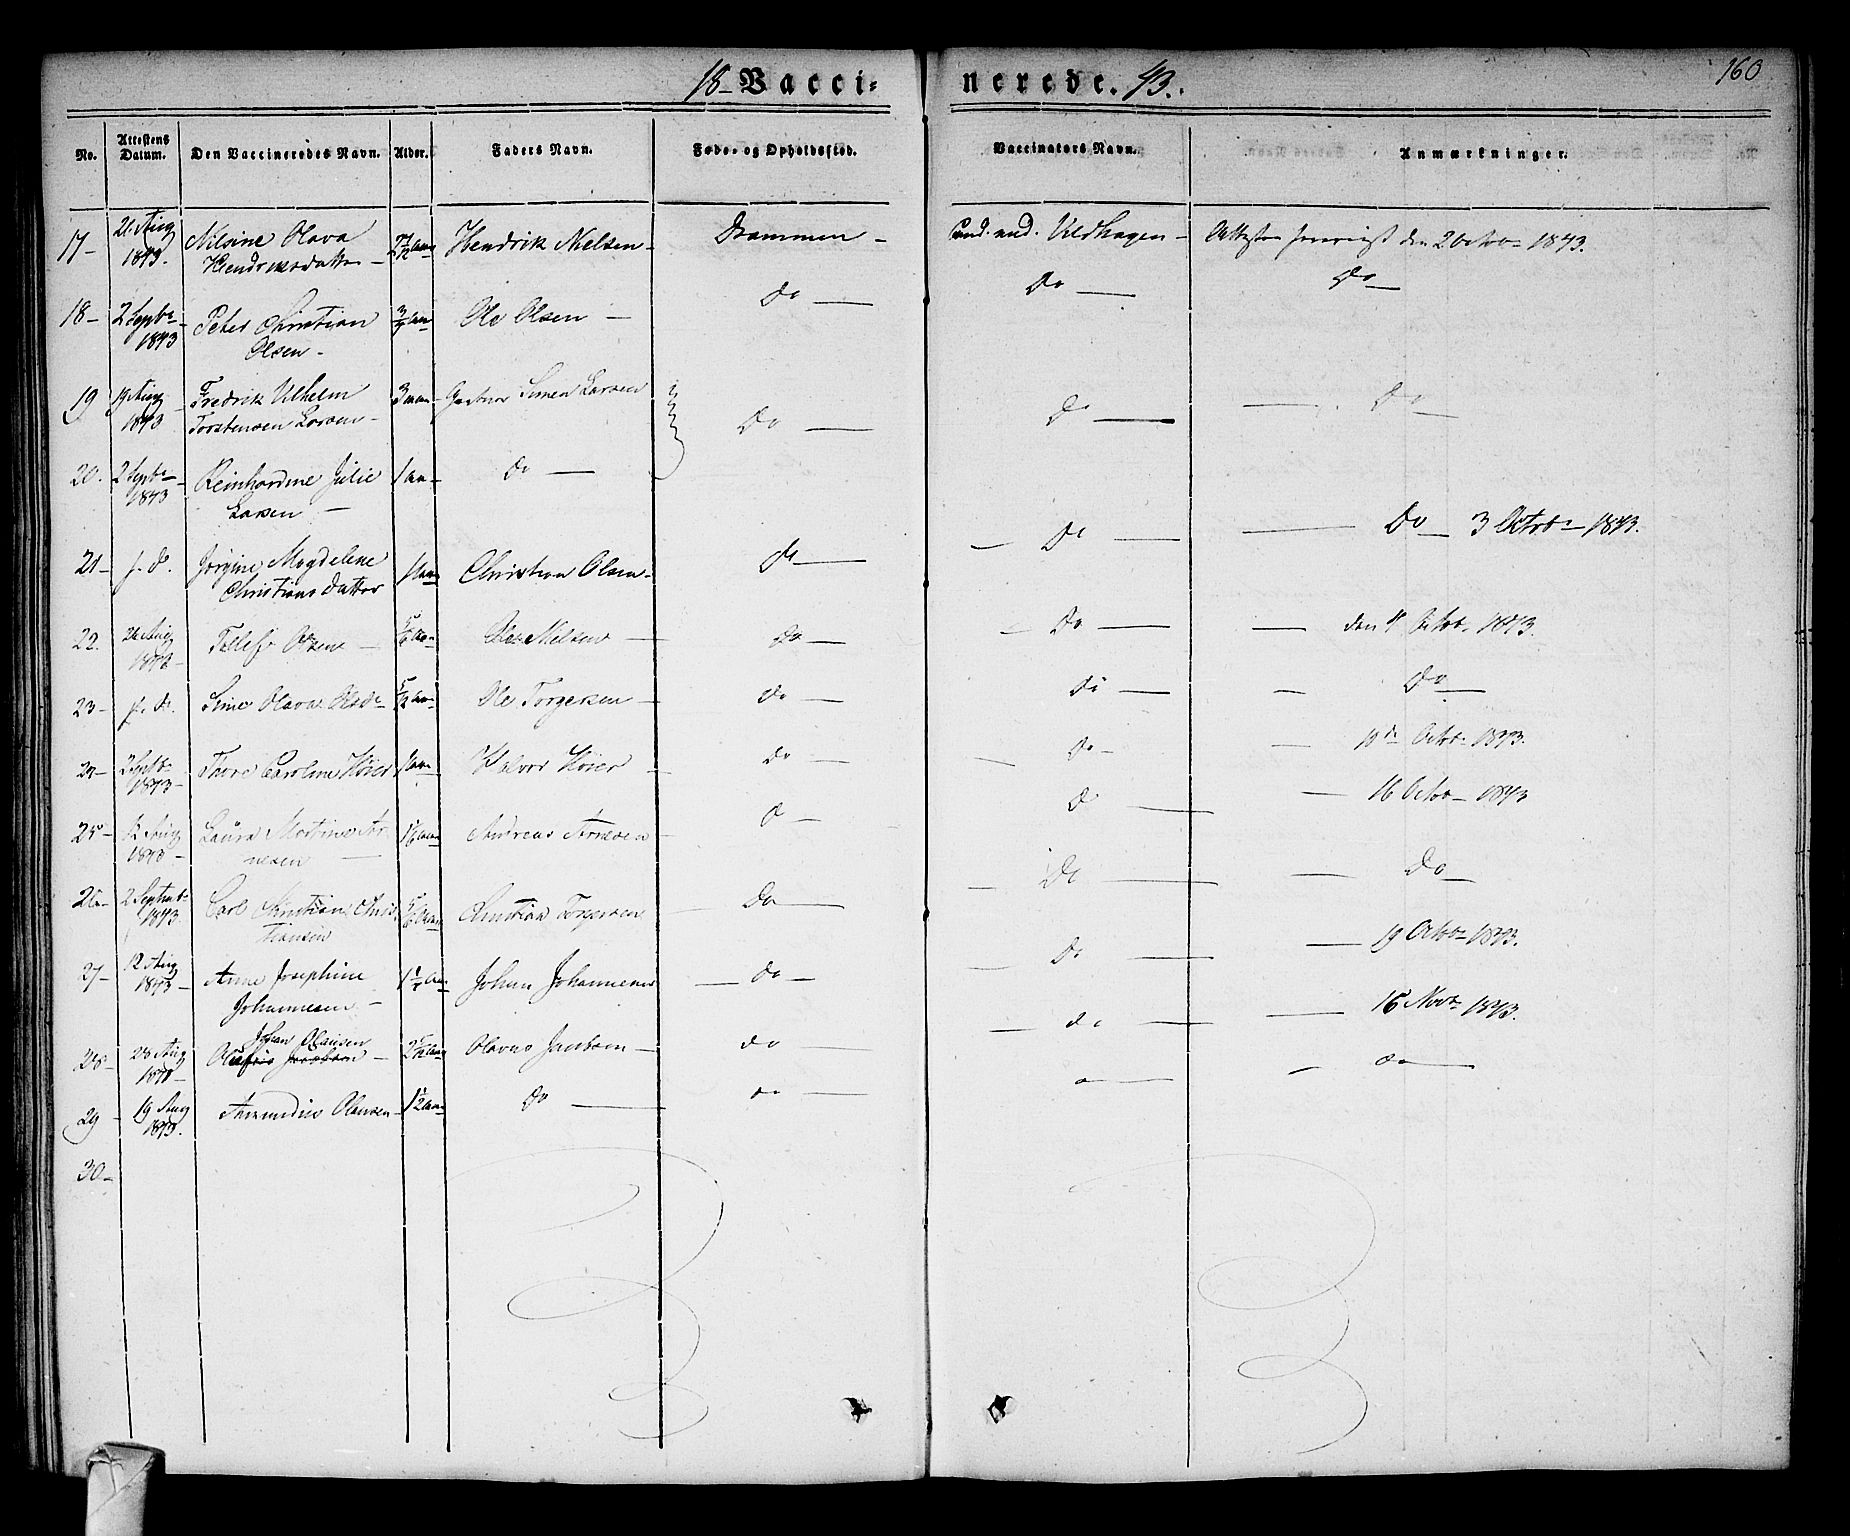 18- Vacci- nerede. 43. 160
No. Attestens Datum. Den Vaccineredes Navn. Alder. Faders Navn. Føde- og Opholdssted. Vaccinators Navn. Anmærkninger.
17- 21 Aug 1843. Nilsine Olava Hendriksdatter - Hendrik Nielsen - Drammen - Cand. med. Uldhagen - den 2 Octob- 1843.
18- 2 Septbr 1843 Peter Christian Olsen - 3/4 aar Ole Olsen - do - Do - Do -
19 19 Aug 1843 Fredrik Vilhelm Torstensen Larsen - 3 aar - Simen Larsen Do - Do - Do -
20. 2 Septbr 1843 Reinhardine Julie Larsen - 1 aar - do -
21- s. d. Jørgine Magdelene Christiansdatter 1 aar Christian Olsen - do - Do - Do - 3 Oktob- 1843.
22. Aug 1843- Tellef Olsen - Ole Nielsen - do - Do - den 4 Octob. 1843.
23- s. d. Olava Ole Torgersen - do - do - Do -
24- 2 Septb- 1843- Thore Caroline Høier 1 aar Halvor Høier - do - do - 10de Octob- 1843.
25- 12 Aug 1843- Laura Martine Arnesen - Andreas Arnesen - do - D - 16 Octob- 1843
26- 2 Septemb- 1843. Carl Christian Christiansen Christian Torgersen - Do - Do - Do -
27- 12 Aug 1843- Anne Josephine Johannesen - Johan Johannesen - do - Do - 19 Octob- 1843.
28- Aug Johan Olausen Olavus Jacobsen - do - do - 15 Novb- 1843.
29- 19 Aug 1843. Amundus Olausen - 1 1/2 aar Do - do - do -
30-